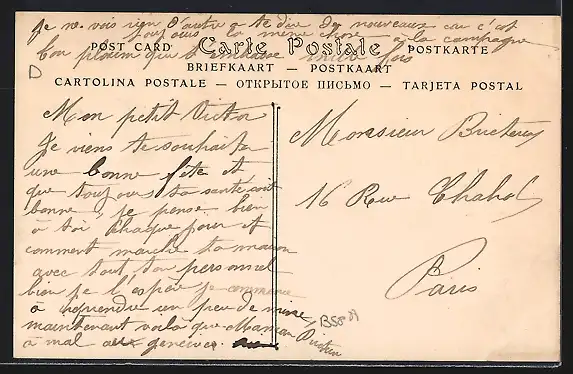 je ne vois rien d'autre a te dire de nouveaux car c'est
toujours la meme chose à la campagne
POST CARD Carte Postale POSTKARTE
ton plouim que t'embrasse mille fois
BRIEFKAART — POSTKAART
D
CARTOLINA POSTALE — ОТКРЫТОЕ ПИСЬМО — TARJETA POSTAL
Mon petit Victor
Je viens te souhaiter
une bonne fête et
que toujours ta santé soit
bonne, je pense bien
à toi chaque jour et
comment marche ta maison
avec tout ton personnel
bien je l'espère je commence
à reprendre un peu de mine
maintenant voila que Maman
à mal aux gencives.
Monsieur
16 Rue Chabrol
Paris
BS08